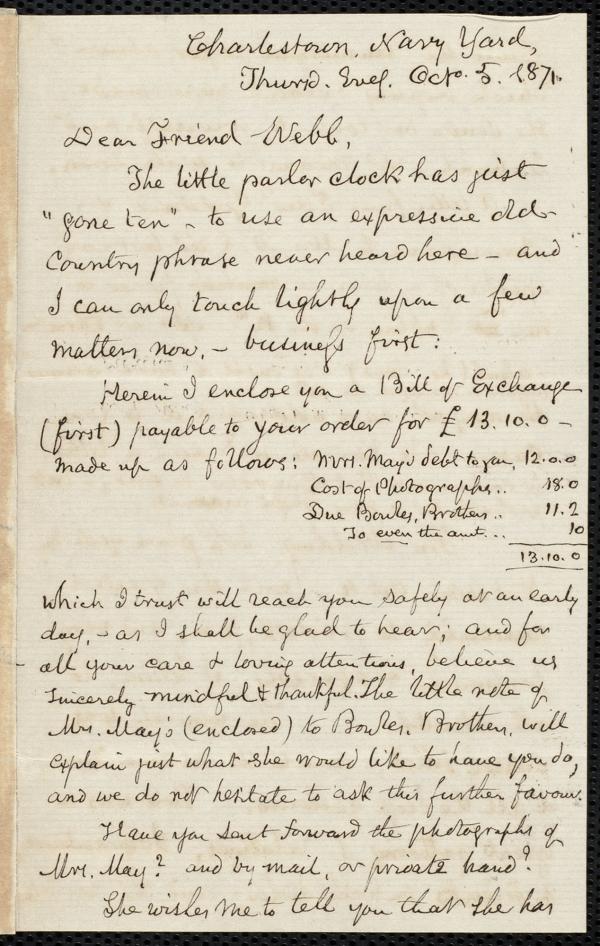 Charlestown, Navy Yard,
Thursd. Eveg. Octo. 5. 1871.
Dear Friend Webb,
The little parlor clock has just
"gone ten" - to use an expressive old-
Country phrase never heard here - and
I can only touch lightly upon a few
matters now, - business first:
Herein I enclose you a Bill of Exchange
(first) payable to your order for £13.10.0 -
made up as follows: Mrs. May's debt to you, 12.0.0
Cost of Photographs.. 18.0
Due Bowles, Brothers.. 11.2
To even the amt... 10
13.10.0
which I trust will reach you safely at an early
day, - as I shall be glad to hear; and for
all your care & loving attentions, believe us
sincerely mindful & thankful. The little note of
Mrs. May's (enclosed) to Bowles, Brothers, will
explain just what she would like to have you do,
and we do not hesitate to ask this further favour.
Have you sent forward the photographs of
Mrs. May? and by mail, or private hand?
She wishes me to tell you that she has